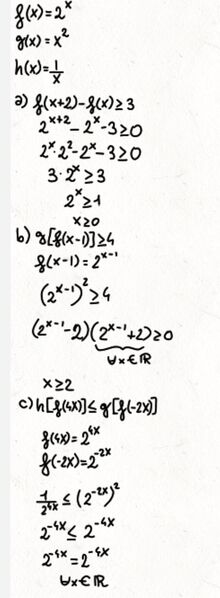 f(x)=2^x
g(x)=x^2
h(x)=1/x
a) f(x+2)-f(x)≥3
2^{x+2}-2^x-3≥0
2^x·2^2-2^x-3≥0
3·2^x≥3
2^x≥1
x≥0
b) g[f(x-1)]≥4
f(x-1)=2^{x-1}
(2^{x-1})^2≥4
(2^{x-1}-2)(2^{x-1}+2)≥0
∀x∈ℝ
x≥2
c) h[f(4x)]≤g[f(-2x)]
f(4x)=2^{4x}
f(-2x)=2^{-2x}
1/2^{4x}≤(2^{-2x})^2
2^{-4x}≤2^{-4x}
2^{-4x}=2^{-4x}
∀x∈ℝ